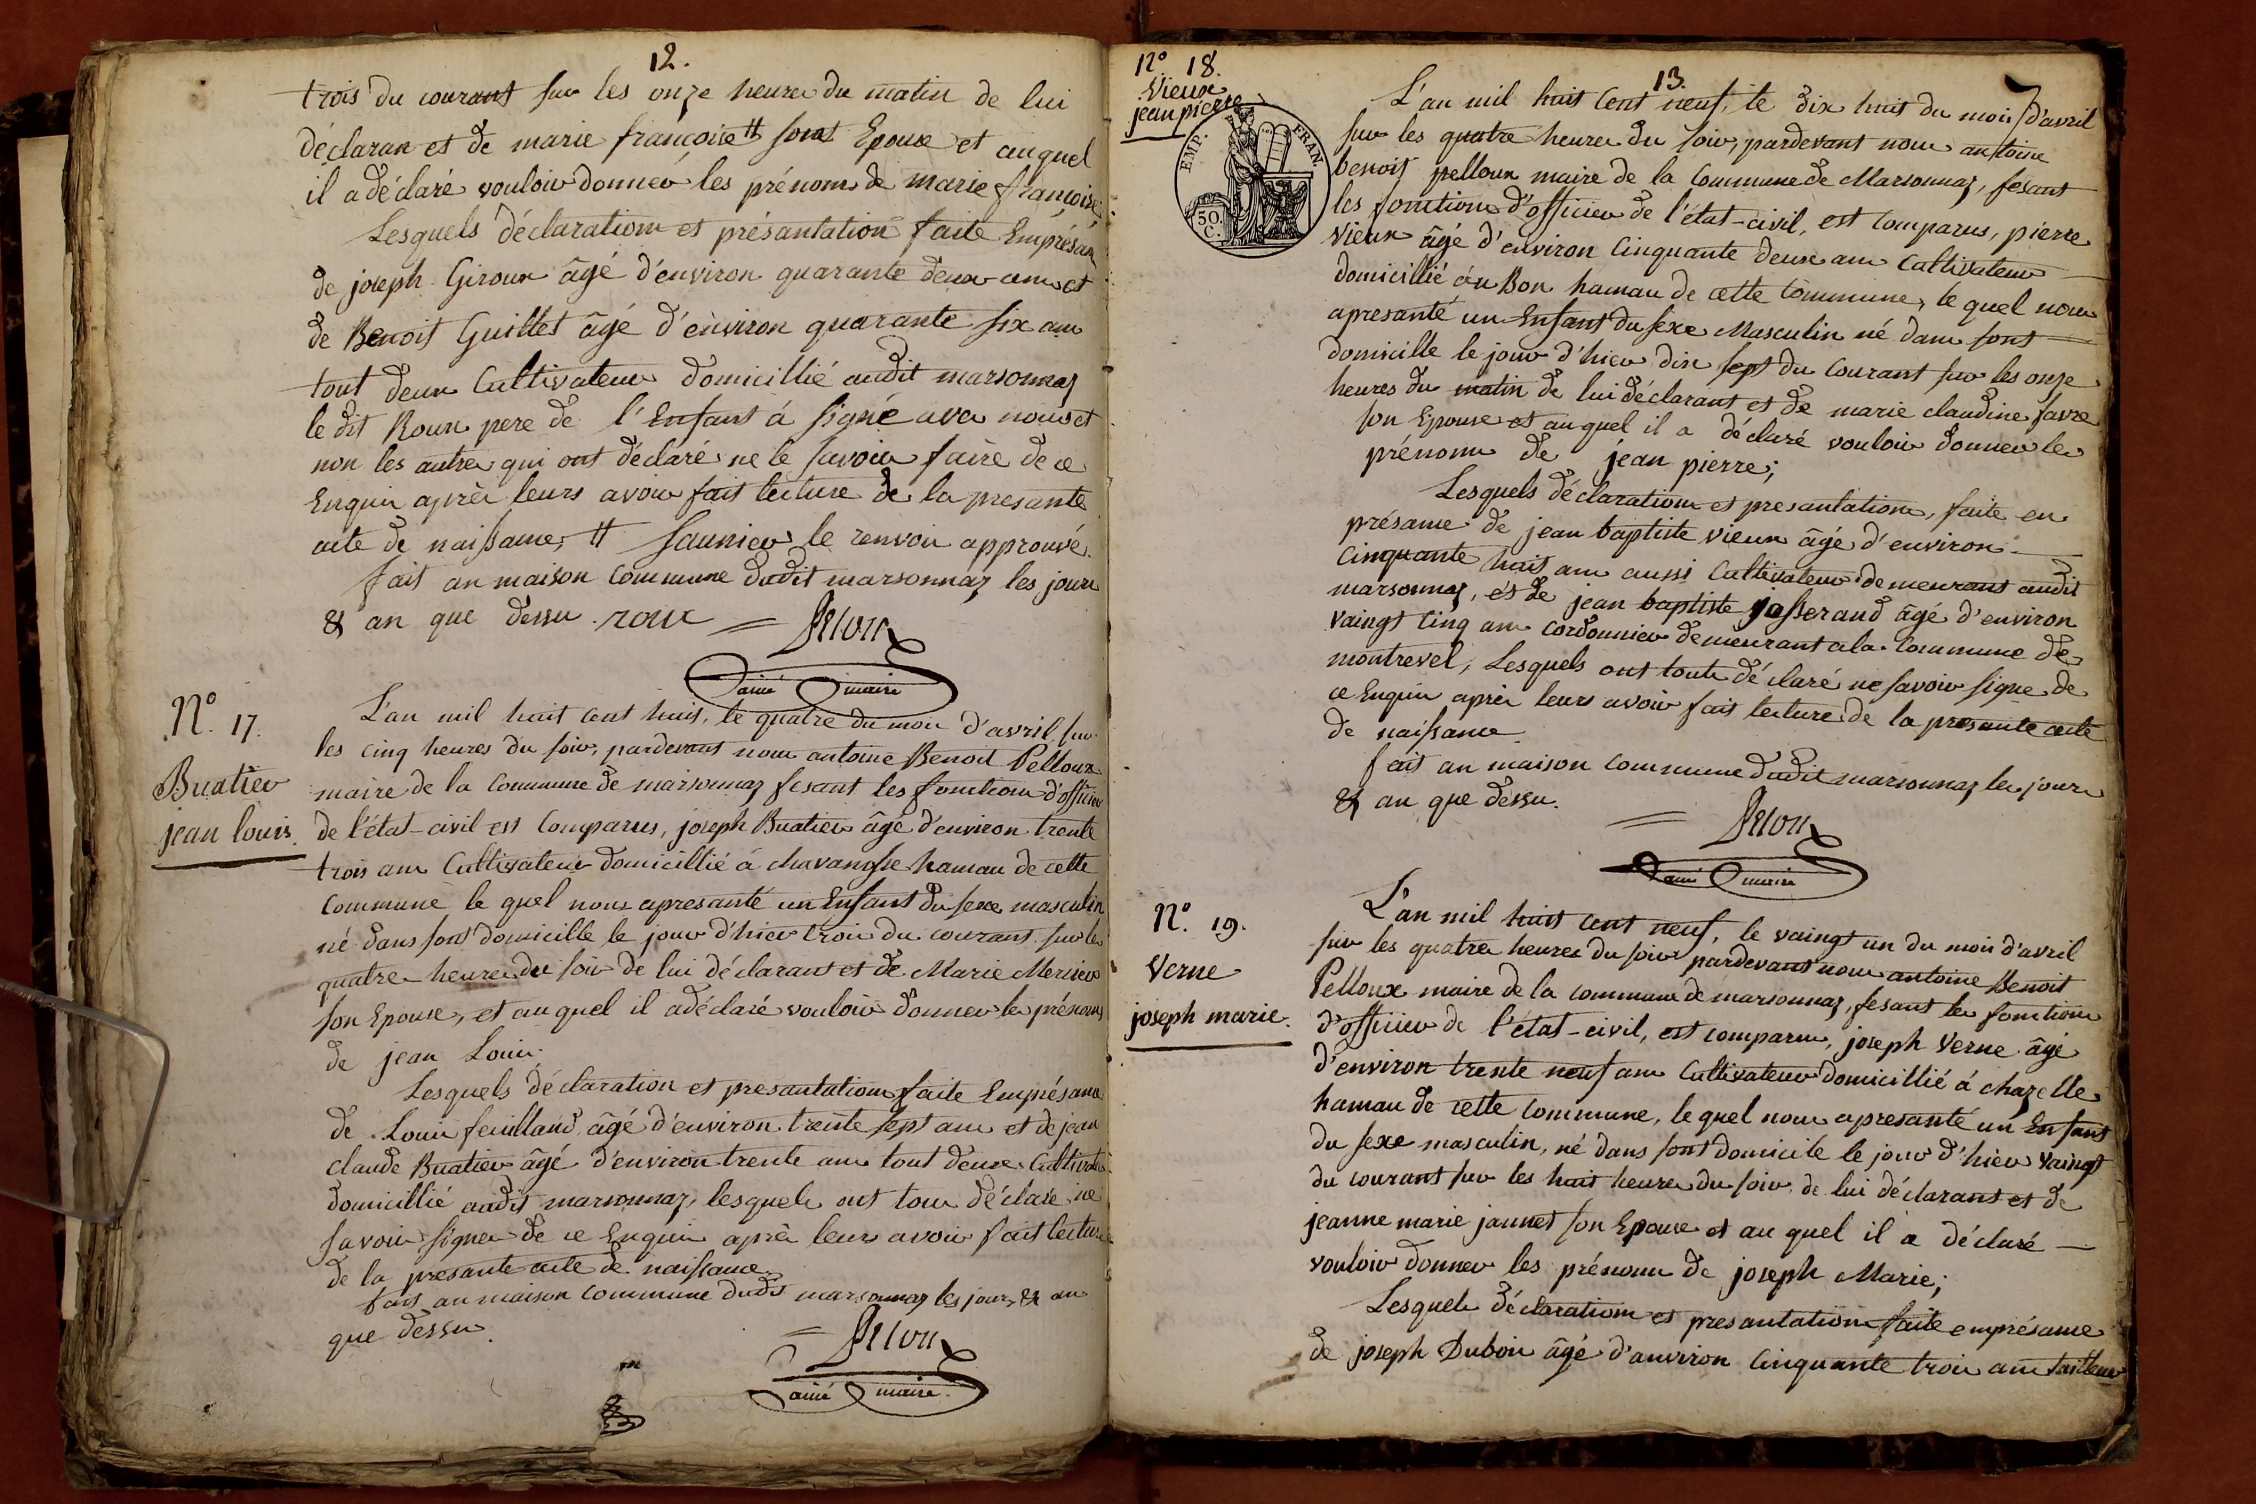 12.
trois du courant sur les onze heures du matin de lui
déclaran et de marie françoise # sont Epouse et auquel
il a déclaré vouloir donner les prénoms de marie françoise
Lesquels déclarations et présantation faite Emprésan
de joseph Giroux âgé d'environ quarante deux ans et
de Benoit Guillet âgé d'environ quarante six ans
tout deux Cultivateur domicillié audit marsonnaz
le dit Roux pere de l'Enfant á signé avec nous et
non les autres qui ont déclaré ne le savoir faire de ce
Enquis après leurs avoir fait lecture de la presante
acte de naissance, # Saunier le renvoi approuvé.
fait an maison commune dudit marsonnaz les jours
& an que dessu. roux
Pelloux
ainé maire
N.º 17.
Buatier
jean louis.
L'an mil huit cent huit, le quatre du mois d'avril sur
les cinq heures du soir, pardevant nous antoine Benoit Pelloux
maire de la Commune de marsonnaz fesant les fonctions d'officier
de l'état-civil est Comparus, joseph Buatier âgé d'environ trente
trois ans Cultivateur domicillié á chavanosse hamau de cette
Commune le quel nous apresanté un Enfant du sexe masculin
né dans sont domicille le jour d'hier trois du courant sur les
quatre heures du soir de lui déclarant et de Marie Mercier
son Epouse, et auquel il adéclaré vouloir donner les prénoms
de jean Louis.
Lesquels déclaration et presantations faite Emprésance
de Louis feuilland âgé d'environ trente sept ans et de jean
claude Buatier âgé d'environ trente ans tout deux Cultivate
domicillié audit marsonnaz, lesquels ont tous déclaré ne
savoir signer de ce Enquis après leurs avoir fait lecture
de la presante acte de naissance.
fait an maison commune dudit marsonnaz les jours & an
que dessu.
Pelloux
ainé maire.
Nº 18.
Vieux
jean pierre
EMP. FRAN.
50.
C.
13.
7
L'an mil huit Cent neuf, le dix huit du mois d'avril
sur les quatre heures du soir, pardevant nous antoine
benoit pelloux maire de la Commune de Marsonnaz, fesant
les fonctions d'officier de l'état-civil, est Comparus, pierre
Vieux âgé d'environ Cinquante deux ans Cultivateur
domicillié áu Bon hamau de cette Commune, le quel nous
apresanté un Enfant du sexe Masculin né dans sont
domicille le jour d'hier dix sept du Courant sur les onze
heures du matin de lui déclarant et de marie claudine favre
son Epouse et auquel il a déclaré vouloir donner les
prénoms de jéan pierre;
Lesquels déclarations et presantations, faite en
présance de jean baptiste vieux âgé d'environ
Cinquante huit ans aussi Cultivateur demeurant audit
marsonnaz, et de jean baptiste josserand âgé d'environ
vaingt Cinq ans cordonnier demeurant a la Commune de
montrevel, Lesquels ont toute déclaré ne savoir signe de
ce Enquis après leurs avoir fait lecture de la presante acte
de naissance
fait an maison commune dudit marsonnaz les jours
& an que dessu.
Pelloux
ainé maire
N.º 19.
Verne
joseph marie.
L'an mil huit cent neuf, le vaingt un du mois d'avril
sur les quatre heures du soir pardevant nous antoine Benoit
Pelloux maire de la commune de marsonnaz, fesant les fonctions
d'officier de l'état-civil, est comparus, joseph Verne âgé
d'environ trente neuf ans Cultivateur domicillié á chazelle
hamau de cette commune, le quel nous apresanté un Enfant
du sexe masculin, né dans sont domicile le jour d'hier vaingt
du courant sur les huit heures du soir de lui déclarant et de
jeanne marie jaunet son Epouse et au quel il a déclaré
vouloir donner les prénoms de joseph Marie;
Lesquels déclarations et presantations faite emprésance
de joseph Dubois âgé d'anviron Cinquante trois ans tailleur